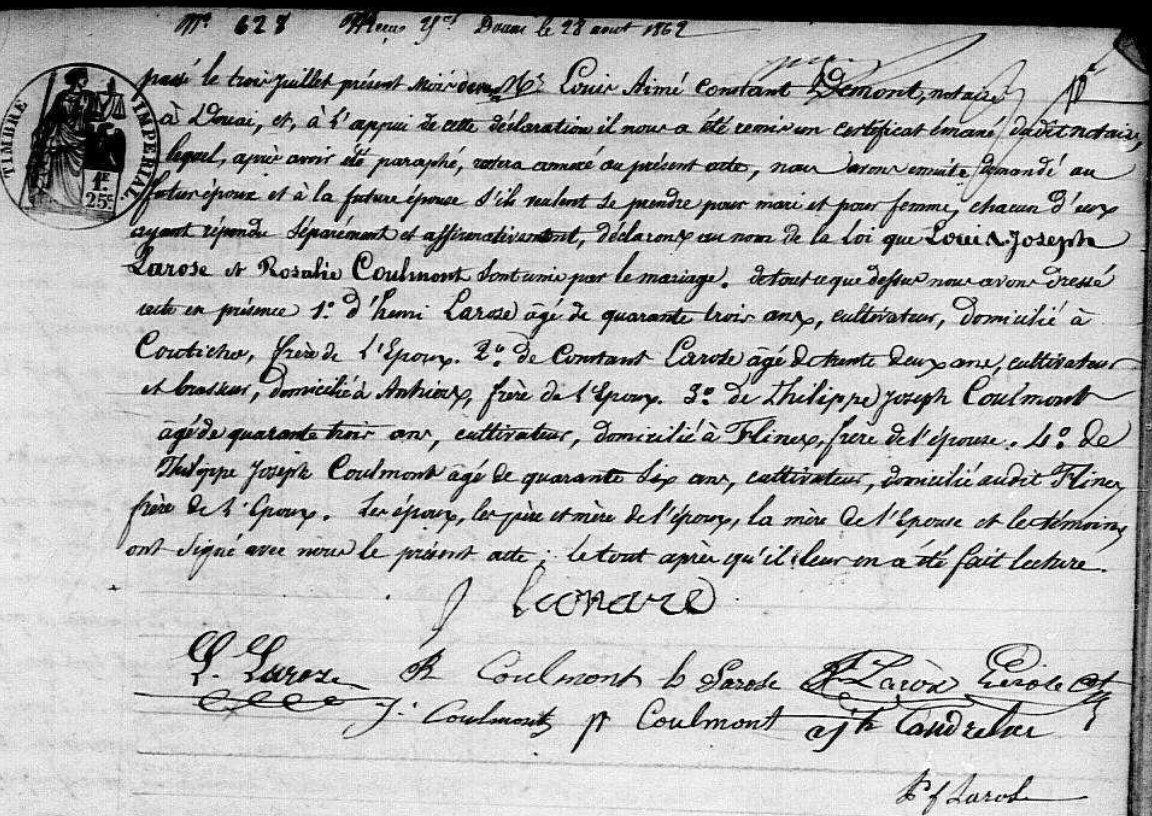 N° 628 Douai le 28 aout 1862
TIMBRE IMPERIAL.
1F.
25c.
passé le trois juillet présent mois devant Me. Louis Aimé Constant Demont, notaire
à Douai, et, à l'appui de cette déclaration il nous a été remis un certificat émané dudit notaire,
lequel, après avoir été paraphé, restera annexé au présent acte, nous avons ensuite demandé au
futur époux et à la future épouse s'ils veulent se prendre pour mari et pour femme, chacun d'eux
ayant répondu séparément et affirmativement, déclarons au nom de la loi que Louis Joseph
Larose et Rosalie Coulmont sont unis par le mariage. de tout ce que dessus nous avons dressé
acte en présence 1° d'henri Larose âgé de quarante trois ans, cultivateur, domicilié à
Coutiches, frère de l'Epoux. 2° de Constant Larose âgé de trente deux ans, cultivateur
et brasseur, domicilié à frère de l'Epoux. 3° de Philippe Joseph Coulmont
âgé de quarante trois ans, cultivateur, domicilié à Flines, frère de l'épouse. 4° de
Philippe Joseph Coulmont âgé de quarante six ans, cultivateur, domicilié audit Flines
frère de l'Epoux. Les époux, les père et mère de l'époux, la mère de l'Epouse et les témoins
ont signé avec nous le présent acte ; le tout après qu'il leur en a été fait lecture.
L. Larose R Coulmont Larose
J. Coulmont Coulmont
Larose